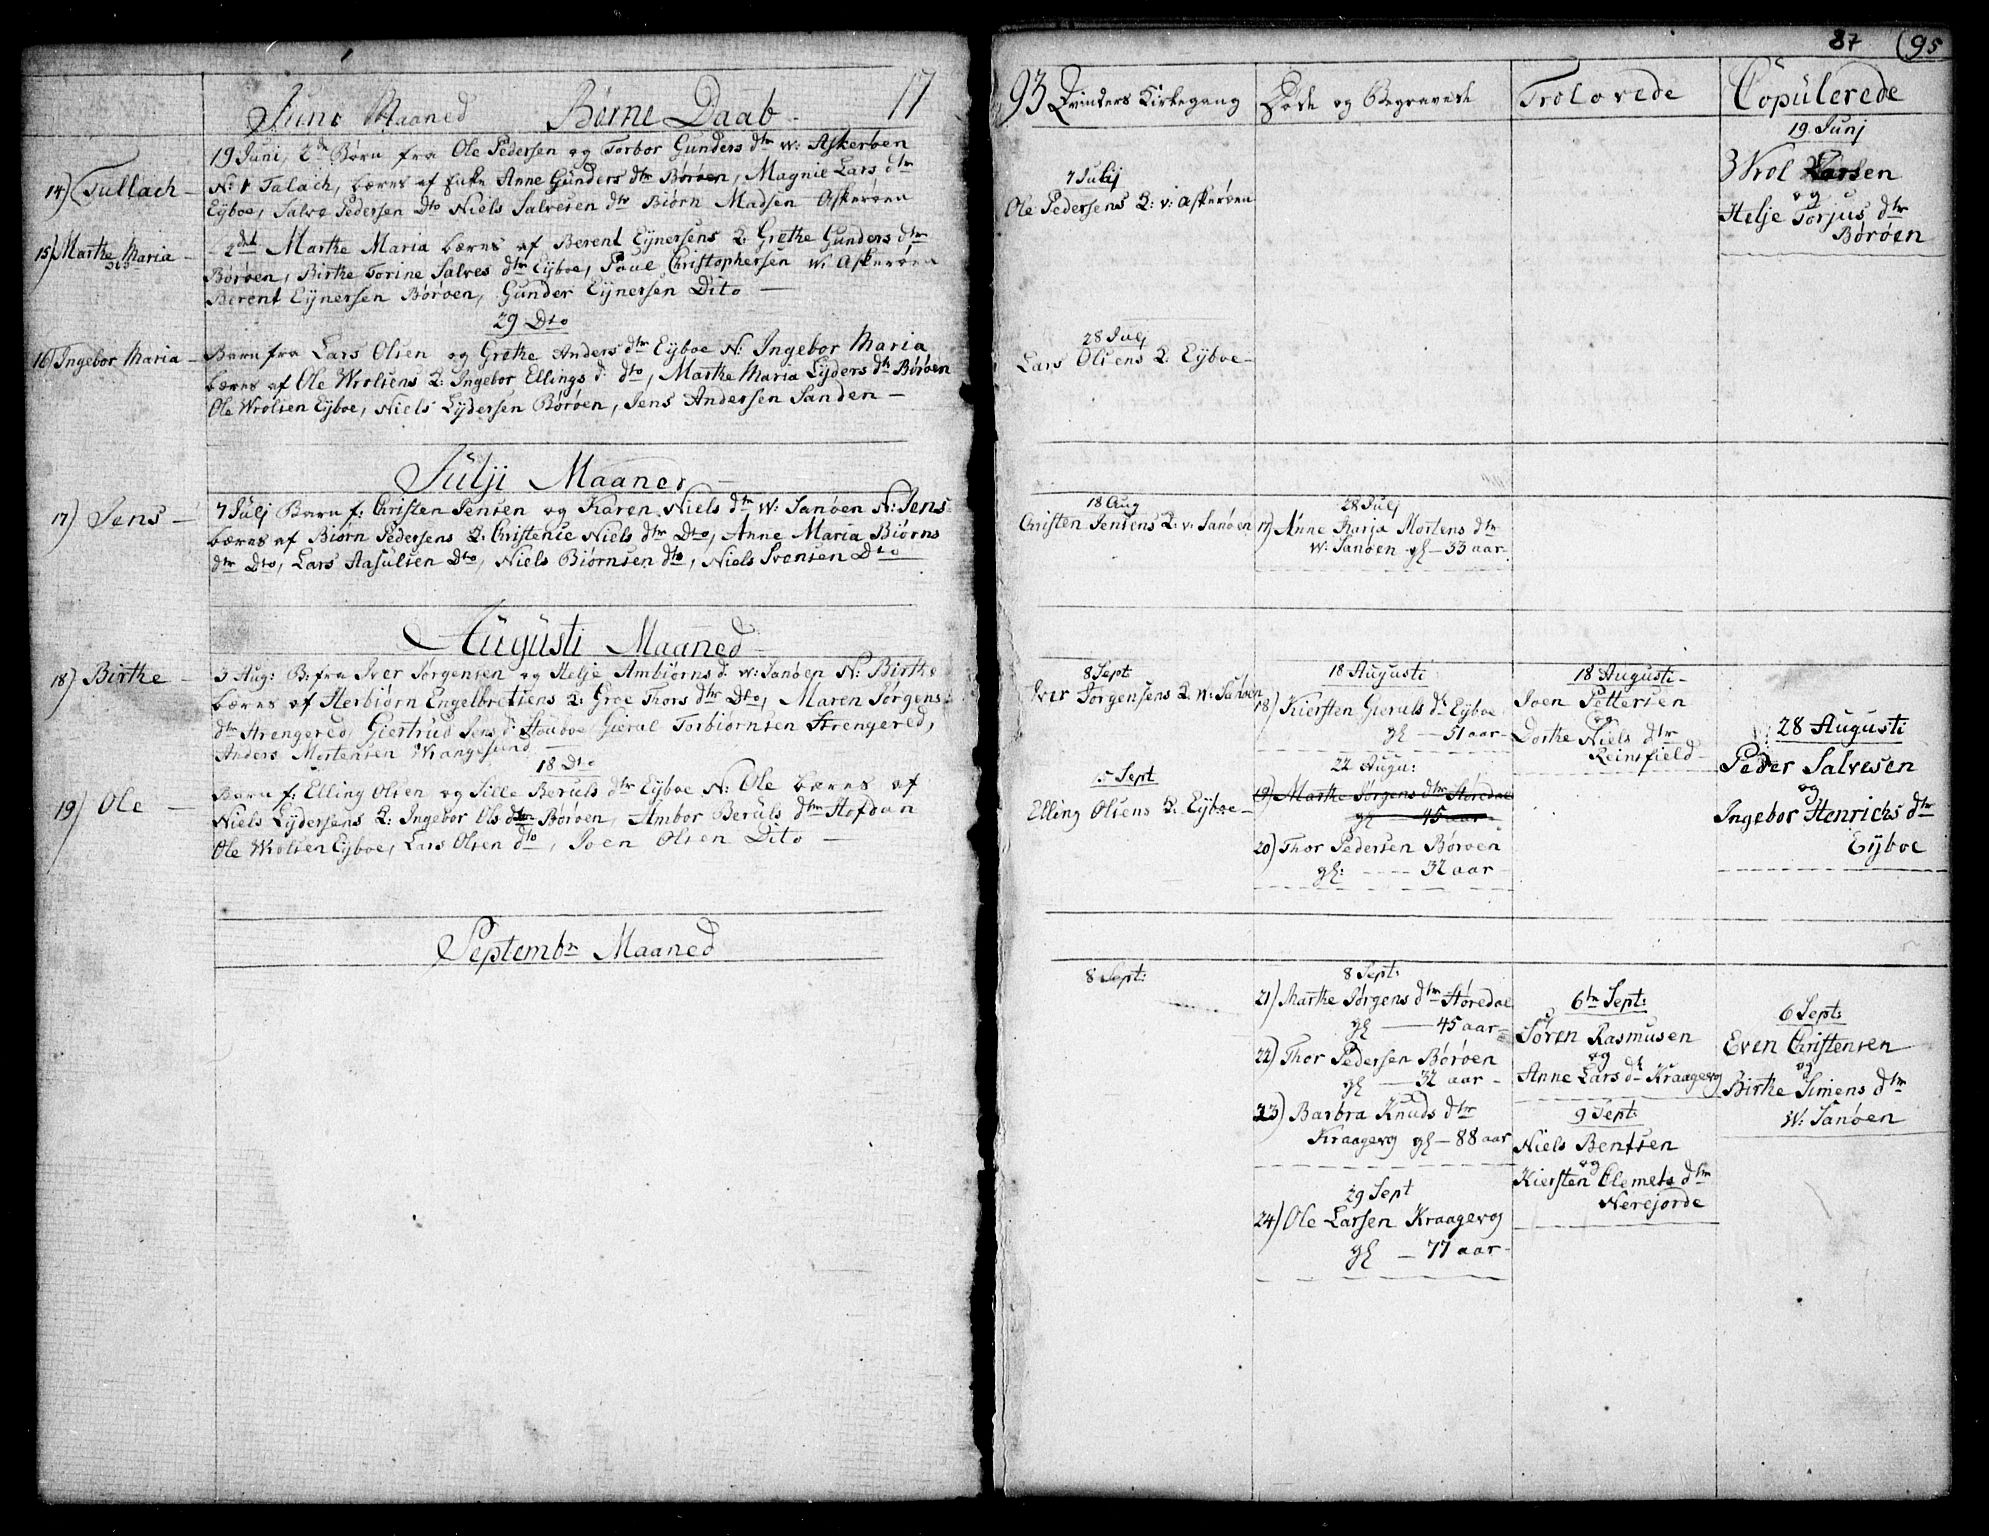 Juni Maaned Børne Daab 17
19 Juni, 2de Børn fra Ole Pedersen og Torbor Gunders dtr w: Askerøen
14) Tullach - N: 1 Talach, bæres af Enke Anne Gunders dtr Børøen, Magnie Lars dtr
Eyboe, Salve Pedersen Dto Niels Salvesen dto Biørn Madsen Askerøen
15) Marthe Maria - 2det Marthe Maria bæres af Berent Eijnersens Q: Grethe Gunders dtr
Børøen, Birthe Torine Salves dtr Eijboe, Poul Christophersen W. Askerøen
Berent Eijnersen Børøen, Gunder Eijnersen Dito —
29 Dto
16) Ingebor Maria - Barn fra Lars Olsen og Grethe Anders dtr Eijboe N: Ingebor Maria
bæres af Ole Wrolsens Q: Ingebor Ellings d: dto, Marthe Maria Lijders dtr Børøen
Ole Wrolsen Eijboe, Niels Lijdersen Børøen, Jens Andersen Sanden —
Julji Maaned
17) Jens - 7 Julj Barn f: Christen Jensen og Karen Niels dtr W: Sanøen N: Jens
bæres af Biørn Pedersens Q: Christenie Niels dtr Dto, Anne Maria Biørns
dtr Dto, Lars Aasulsen Dto, Niels Biørnsen dto, Niels Svensen Dto
Augusti Maaned
18) Birthe - 3 Aug: B: fra Iver Jørgensen og Helje Ambiørns d: w: Sanøen N: Birthe
bæres af Herbiørn Engelbretsens Q: Groe Thors dtr Dto, Maren Jørgens
dtr Strengered, Giertrud Jens d: Stouboe, Gieral Torbiørnsen Strengered,
Anders Mortensen Wrangesund —
18 Dto
19) Ole - Barn f: Elling Olsen og Sille Beruls dtr Eijboe N: Ole bæres af
Niels Lijdersens Q: Ingebor Ols dtr Børøen, Ambor Beruls dtr Hofdan
Ole Wrolsen Eijboe, Lars Olsen dto, Joen Olsen Dito —
Septembr Maaned
87 (95
93 Qvinders Kirkegang
7 Julij
Ole Pedersens Q: v: Askerøen
28 Julj
Lars Olsens Q: Eijboe-
18 Aug
Christen Jensens Q: v: Sanøen
8 Sept
Iver Jørgensens Q w: Sanøen
15 Sept
Elling Olsens Q: Eijboe-
8 Sept:
Døde og Begravede
28 Julj
17) Anne Karja Mortens dtr
W: Sanøen gl - 33 aar
18 Augusti
18) Kiersten Gieruls dtr Eyboe
gl — 51 aar-
22 Augu:
19) Marthe Jørgens dtr Støredal
gl — 45 aar
20) Thor Pedersen Børøen
gl: ---- 32 aar
8 Sept:
21) Marthe Jørgens dtr Støredal
gl — 45 aar-
22) Thor Pedersen Børøen
gl — 32 aar -
23) Barbra Knuds dtr
Kraagevog gl - 88 aar
29 Sept
24) Ole Larsen Kraagevog
gl - 77 aar-
Trolovede
18 Augusti-
Joen Pettersen
og
Dorthe Niels dtr
Reinsfield-
6te Sept:
Søren Rasmusen
og
Anne Lars dtr Kraagevog
9 Sept:
Niels Bentsen
og
Kiersten Clemets dtr
Nerejorde
Copulerede
19 Junj
3 Wrol Larsen
og
Helje Torjus dtr
Børøen
28 Augusti
Peder Salvesen
og
Ingebor Henrichs dtr
Eijboe
6 Sept:
Even Christensen
og
Birthe Simens dtr
W: Sanøen